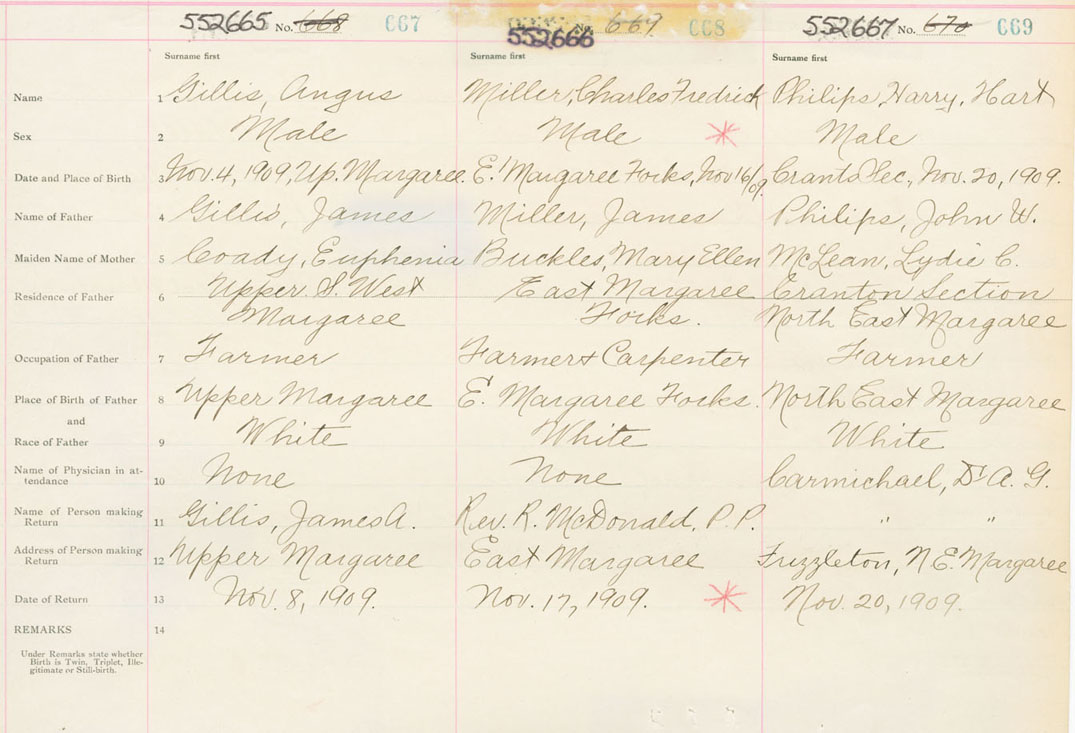 552665 No. 668 667 552666 No. 669 668 552667 No. 670 669
Surname first Surname first Surname first
Name 1 Gillis, Angus Miller, Charles Fredrick Philips, Harry, Hart
Sex 2 Male Male Male
Date and Place of Birth 3 Nov. 4, 1909, Up. Margaree. E. Margaree Forks, Nov 16/09. Sec., Nov. 20, 1909.
Name of Father 4 Gillis, James Miller, James Philips, John W.
Maiden Name of Mother 5 Coady, Euphenia Buckles, Mary Ellen McLean, Lydie C.
Residence of Father 6 Upper S. West East Margaree Cranton Section
Margaree Forks. North East Margaree
Occupation of Father 7 Farmer Farmer & Carpenter Farmer
Place of Birth of Father 8 Upper Margaree E. Margaree Forks. North East Margaree
and
Race of Father 9 White White White
Name of Physician in at-
tendance 10 None None Carmichael, Dr A. G.
Name of Person making
Return 11 Gillis, James A. Rev. R. McDonald, P. P. " "
Address of Person making
Return 12 Upper Margaree East Margaree Frizzleton, N E. Margaree
Date of Return 13 Nov. 8, 1909. Nov. 17, 1909. Nov. 20, 1909.
REMARKS 14
Under Remarks state whether
Birth is Twin, Triplet, Ille-
gitimate or Still-birth.